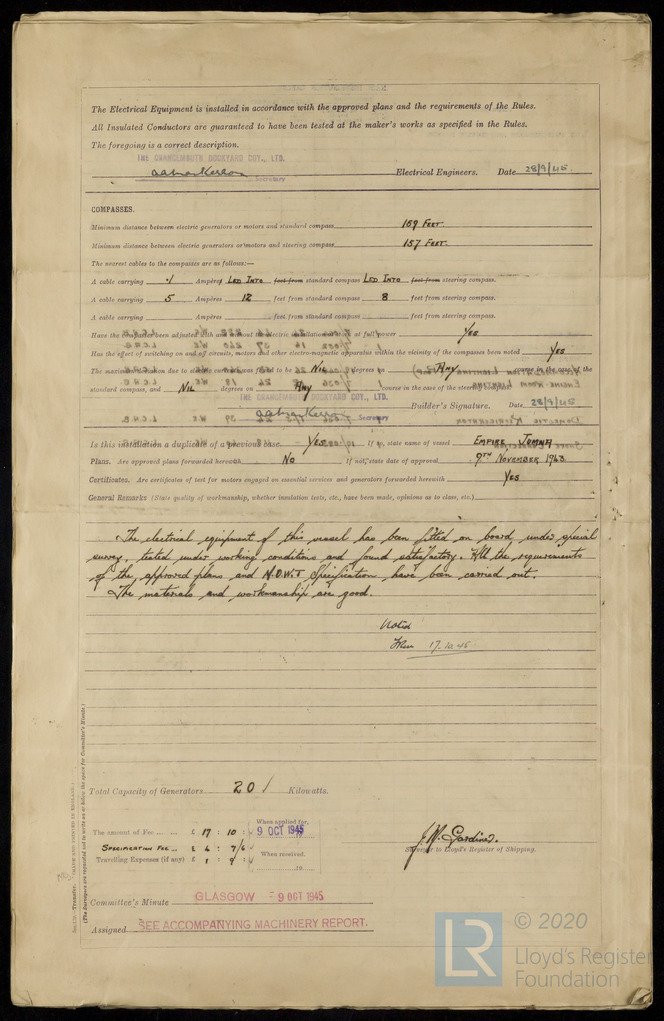 The Electrical Equipment is installed in accordance with the approved plans and the requirements of the Rules.
All Insulated Conductors are guaranteed to have been tested at the maker's works as specified in the Rules.
The foregoing is a correct description.
THE GRANGEMOUTH DOCKYARD COY., LTD.
Secretary Electrical Engineers. Date 28/9/45
COMPASSES.
Minimum distance between electric generators or motors and standard compass 169 FEET
Minimum distance between electric generators or motors and steering compass 157 FEET
The nearest cables to the compasses are as follows:—
A cable carrying .1 Ampères LED INTO feet from standard compass LED INTO feet from steering compass.
A cable carrying 5 Ampères 12 feet from standard compass 8 feet from steering compass.
A cable carrying Ampères feet from standard compass feet from steering compass.
Have the compasses been adjusted with and without the electric installation at work at full power YES
Has the effect of switching on and off circuits, motors and other electro-magnetic apparatus within the vicinity of the compasses been noted YES
The maximum deviation due to electric currents was found to be NIL degrees on ANY course in the case of the
standard compass, and NIL degrees on ANY course in the case of the steering compass.
THE GRANGEMOUTH DOCKYARD COY., LTD.
Builder's Signature. Date 28/9/45
Is this installation a duplicate of a previous case YES If so, state name of vessel EMPIRE
Plans. Are approved plans forwarded herewith NO If not, state date of approval 9TH NOVEMBER 1943
Certificates. Are certificates of test for motors engaged on essential services and generators forwarded herewith YES
General Remarks (State quality of workmanship, whether insulation tests, etc., have been made, opinions as to class, etc.)
The electrical equipment of this vessel has been fitted on board under special
survey, tested under working conditions and found satisfactory. All the requirements
of the approved plans and M.O.W.T Specification have been carried out.
The materials and workmanship are good.
Noted
17.10.45
Total Capacity of Generators 201 Kilowatts.
The amount of Fee £ 17 : 10 : When applied for, 9 OCT 1945
SPECIFICATION FEE £ 4 : 7/6
Travelling Expenses (if any) £ 1 : 9 : When received,
19
J. W. Gardiner.
Surveyor to Lloyd's Register of Shipping.
Committee's Minute GLASGOW 9 OCT 1945
Assigned SEE ACCOMPANYING MACHINERY REPORT.
(The Surveyors are requested not to write on or below the space for Committee's Minute.)
© 2020
LR
Lloyd's Register
Foundation